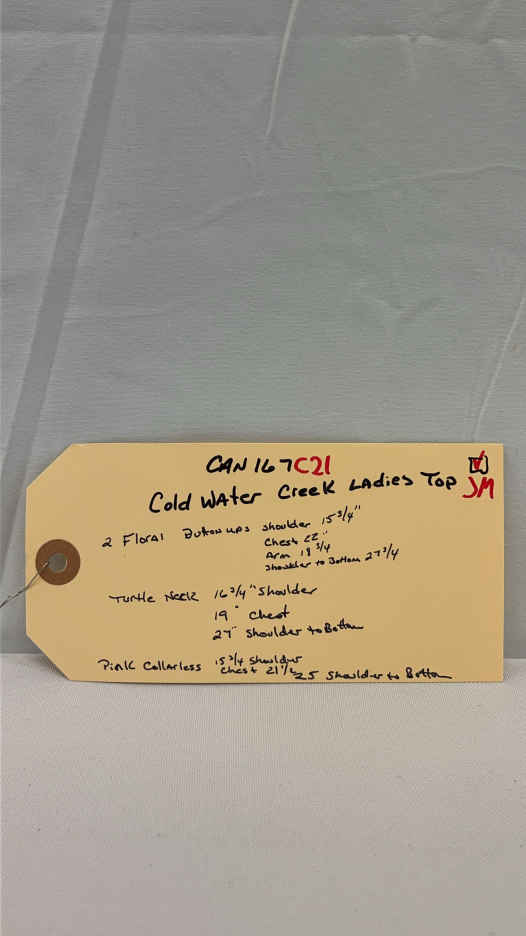 CAN167C21
Cold Water Creek Ladies Top JM
2 Floral Buttonups shoulder 15 3/4"
Chest 22"
Arm 18 3/4
Shoulder to Bottom 27 3/4
Turtle Neck 16 3/4" Shoulder
19" Chest
27" Shoulder to Bottom
Pink Collarless 15 3/4 Shoulder
Chest 21 1/2 25 Shoulder to Bottom